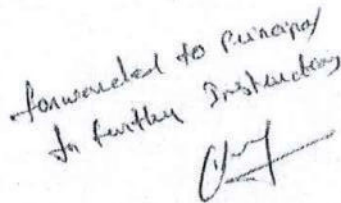 forwarded to Principal
for further Instructions